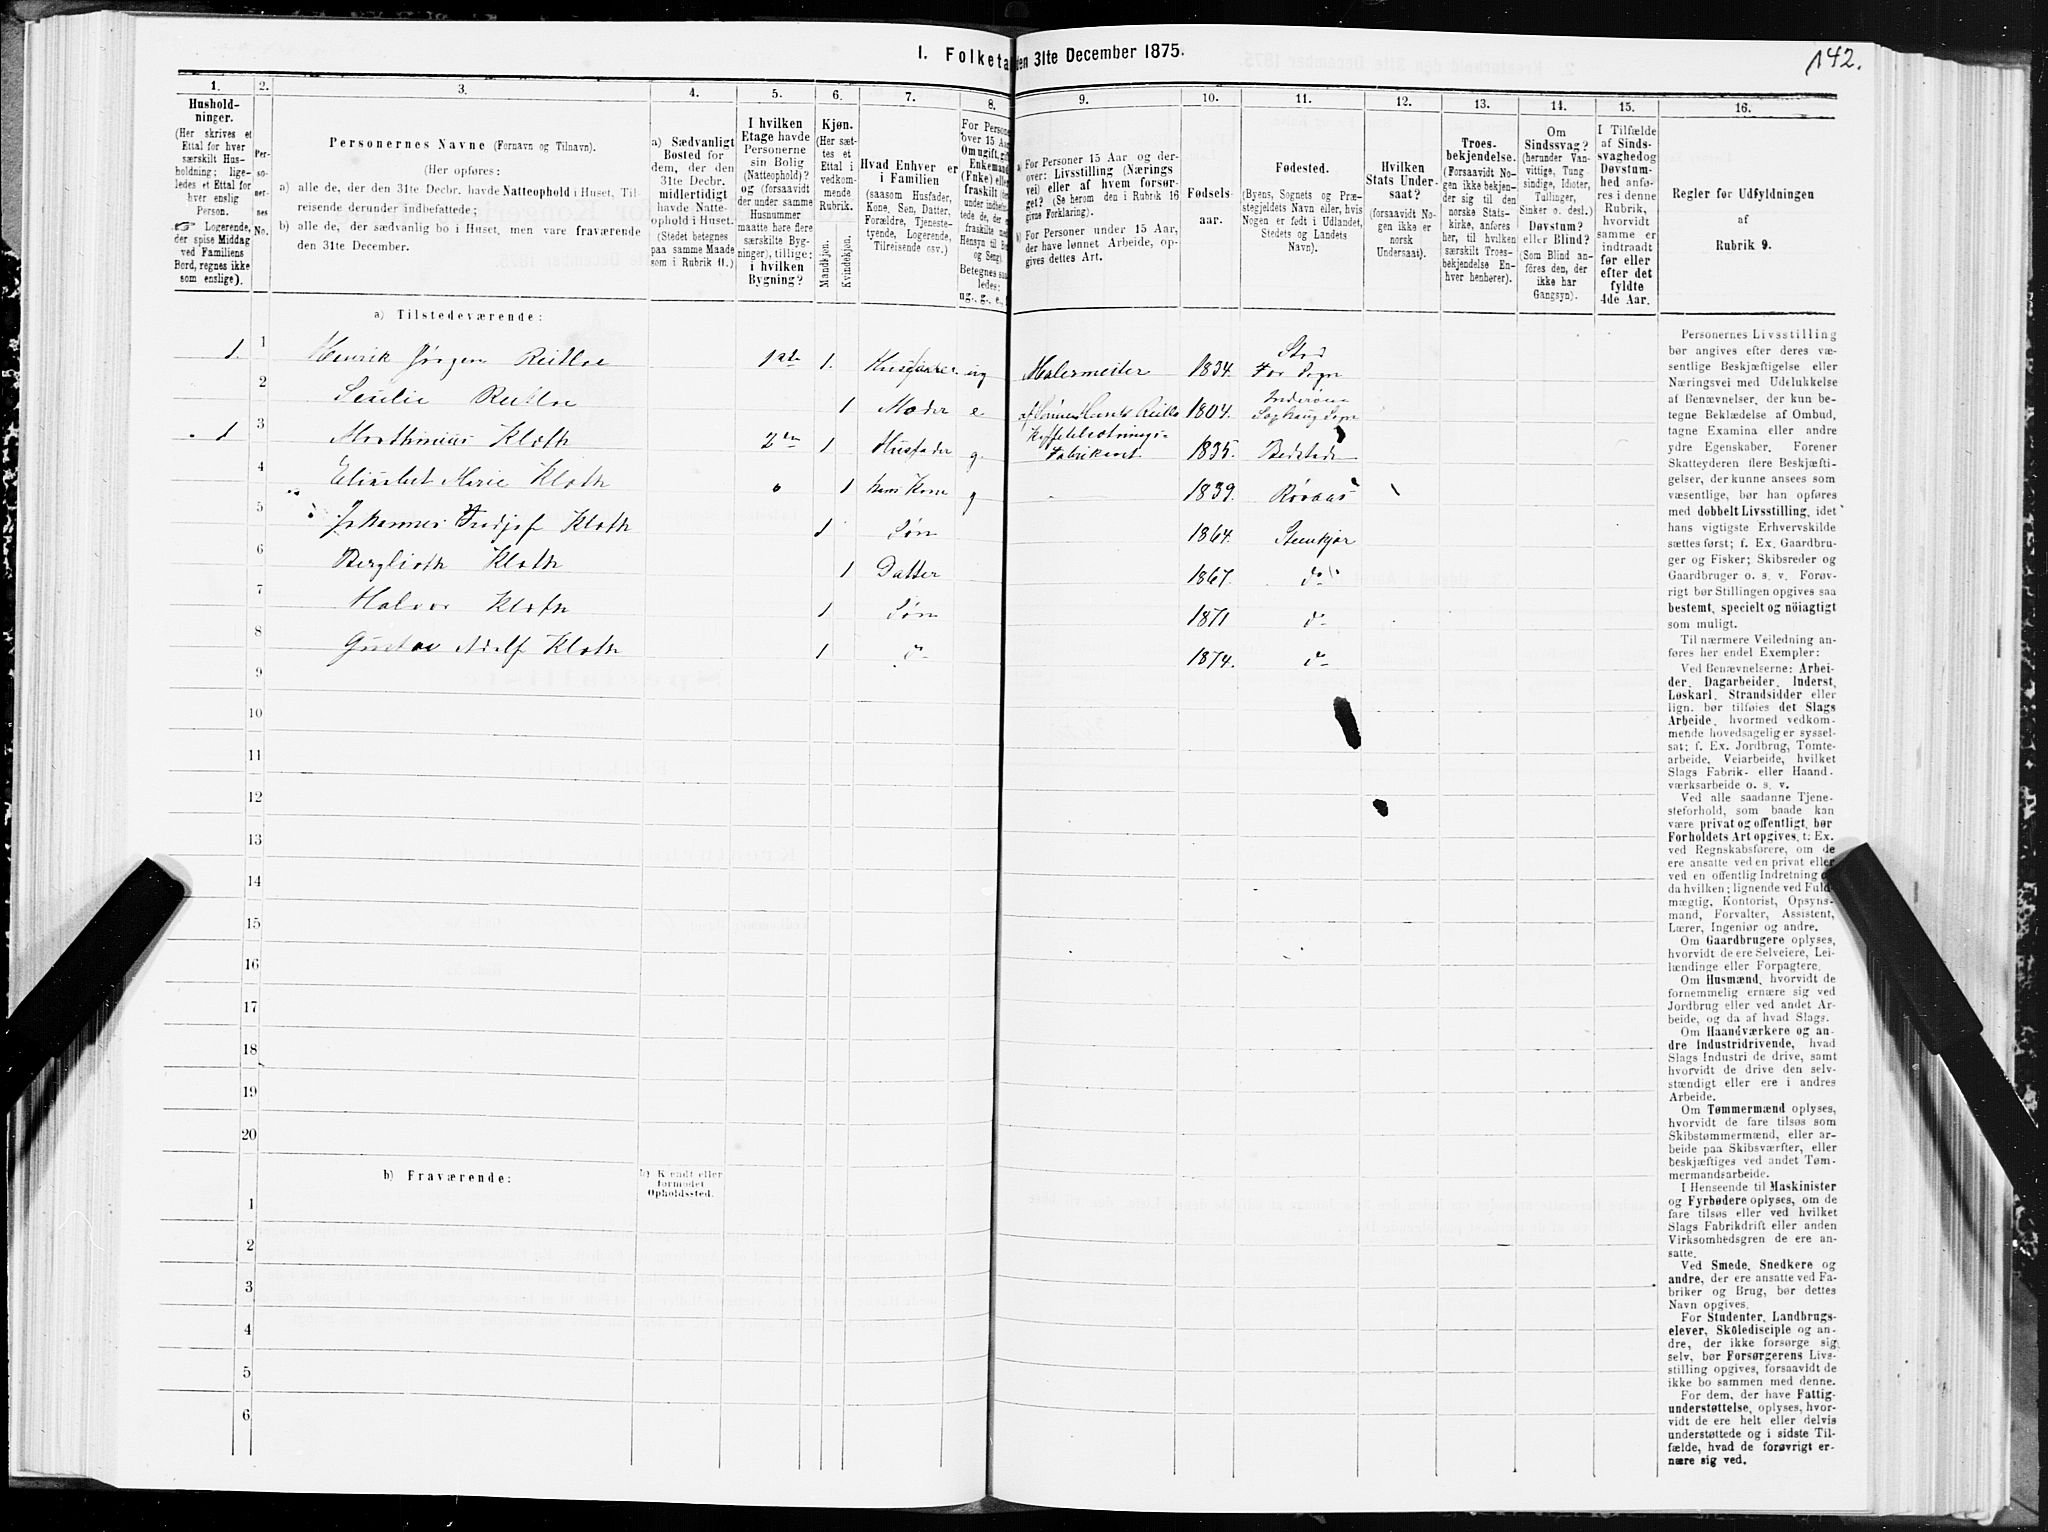 142.
I. Folketa
den 31te December 1875.
1.
2.
3.
4.
5.
6.
7.
8.
9.
10.
11.
12.
13.
14.
15.
16.
Hushold-
ninger.
(Her skrives et
Ettal for hver
særskilt Hus-
holdning; lige-
ledes et Ettal for
hver enslig
Person.
☞ Logerende,
der spise Middag
ved Familiens
Bord, regnes ikke
som enslige).
Per-
so-
ner-
nes
No.
Personernes Navne (Fornavn og Tilnavn).
(Her opføres:
a) alle de, der den 31te Decbr. havde Natteophold i Huset, Til-
reisende derunder indbefattede;
b) alle de, der sædvanlig bo i Huset, men vare fraværende
den 31te December.
a) Sædvanligt
Bosted for
dem, der den
31te Decbr.
midlertidigt
havde Natte-
ophold i Huset.
(Stedet betegnes
paa samme Maade
som i Rubrik 11.)
I hvilken
Etage havde
Personerne
sin Bolig
(Natteophold)?
og (forsaavidt
der under samme
Husnummer
maatte høre flere
særskilte Byg-
ninger), tillige:
i hvilken
Bygning?
Kjøn.
(Her sæt-
tes et
Ettal i
vedkom-
mende
Rubrik.
Mandkjøn.
Kvindekjøn.
Hvad Enhver er
i Familien
(saasom Husfader,
Kone, Søn, Datter,
Forældre, Tjeneste-
tyende, Logerende,
Tilreisende osv.)
For Persone
over 15 Aa
Om ugift, gif
Enkemand
(Enke) elle
fraskilt
Hensyn til B
og Seng).
Betegnes saa
ledes:
ug., g., e.,
a) For Personer 15 Aar og der-
over: Livsstilling (Nærings
vei) eller af hvem forsør-
get? (Se herom den i Rubrik 16
givne Forklaring).
b) For Personer under 15 Aar,
der have lønnet Arbeide, op-
gives dettes Art.
Fødsels-
aar.
Fødested.
(Byens, Sognets og Præ-
stegjeldets Navn eller, hvis
Nogen er født i Udlandet,
Stedets og Landets
Navn).
Hvilken
Stats Under-
saat?
(forsaavidt No-
gen ikke er
norsk
Undersaat).
Troes-
bekjendelse.
(Forsaavidt No-
gen ikke bekjen-
der sig til den
norske Stats-
kirke, anføres
her, til hvilken
særskilt Troes-
bekjendelse En-
hver henhører).
Om
Sindssvag?
(herunder Van-
vittige, Tung-
sindige, Idioter,
Tullinger,
Sinker o. desl.)
Døvstum?
eller Blind?
(Som Blind an-
føres den, der
ikke har
Gangsyn).
I Tilfælde
af Sinds-
svaghed og
Døvstum-
hed anfø-
res i denne
Rubrik,
hvorvidt
samme er
indtraadt
før eller
efter det
fyldte
4de Aar.
Regler før Udfyldningen
af
Rubrik 9.
a) Tilstedeværende:
1. 1 Henrik Jørgen 1. Husfader ug Malermeister 1834.
2 1 Moder e 1804.
1 3 Kløth 1 Husfader g. Fabrikant 1835. Bedstad
4 Elisabet Marie Kløth 1 hans Kone g 1839. Røraas
5 Johannes Kløth 1 Søn 1864. Steenkjær
6 Berglioth Kløth 1 Datter 1867. do
7 Halvor Kløth 1 Søn 1871 do
8 Gustav Adolf Kløth 1 do 1874. do
9
10
11
12
13
14
15
16
17
18
19
20
b) Fraværende:
b) Kjendt eller
formodet
Opholdssted.
1
2
3
4
5
6
Personernes Livsstilling
bør angives efter deres væ-
sentlige Beskjæftigelse eller
Næringsvei med Udelukkelse
af Benævnelser, der kun be-
tegne Beklædelse af Ombud,
tagne Examina eller andre
ydre Egenskaber. Forener
Skatteyderen flere Beskjæfti-
gelser, der kunne ansees som
væsentlige, bør han opføres
med dobbelt Livsstilling, idet
hans vigtigste Erhvervskilde
sættes først; f. Ex. Gaardbru-
ger og Fisker; Skibsreder og
Gaardbruger o. s. v. Forøv-
rigt bør Stillingen opgives saa
bestemt, specielt og nöiagtigt
som muligt.
Til nærmere Veiledning an-
føres her endel Exempler:
Ved Benævnelserne: Arbei-
der, Dagarbeider, Inderst,
Løskarl, Strandsidder eller
lign. bør tilføies det Slags
Arbeide, hvormed vedkom-
mende hovedsagelig er syssel-
sat; f. Ex. Jordbrug, Tomte-
arbeide, Veiarbeide, hvilket
Slags Fabrik- eller Haand-
værksarbeide o. s. v.
Ved alle saadanne Tjene-
steforhold, som baade kan
være privat og offentligt, bør
Forholdets Art opgives, t: Ex.
ved Regnskabsførere, om de
ere ansatte ved en privat eller
ved en offentlig Indretning o
da hvilken; lignende ved Fuld-
mægtig, Kontorist, Opsyns-
mand, Forvalter, Assistent,
Lærer, Ingeniør og andre.
Om Gaardbrugere oplyses,
hvorvidt de ere Selveiere, Lei-
lændinge eller Forpagtere.
Om Husmænd, hvorvidt de
fornemmelig ernære sig ved
Jordbrug eller ved andet Ar-
beide, og da af hvad Slags.
Om Haandværkere og an-
dre Industridrivende, hvad
Slags Industri de drive, samt
hvorvidt de drive den selv-
stændigt eller ere i andres
Arbeide.
Om Tømmermænd oplyses,
hvorvidt de fare tilsøs som
Skibstømmermænd, eller ar-
beide paa Skibsværfter, eller
beskjæftiges ved andet Tøm-
mermandsarbeide.
I Henseende til Maskinister
og Fyrbødere oplyses, om de
fare tilsøs eller ved hvilket
Slags Fabrikdrift eller anden
Virksomhedsgren de ere an-
satte.
Ved Smede, Snedkere og
andre, der ere ansatte ved Fa-
briker og Brug, bør dettes
Navn opgives.
For Studenter, Landbrugs-
elever, Skoledisciple og an-
dre, der ikke forsørge sig
selv, bør Forsørgerens Livs-
stilling opgives, forsaavidt de
ikke bo sammen med denne.
For dem, der have Fattig-
understøttelse, oplyses, hvor-
vidt de ere helt eller delvis
understøttede og i sidste Til-
fælde, hvad de forøvrigt er-
nære sig ved.